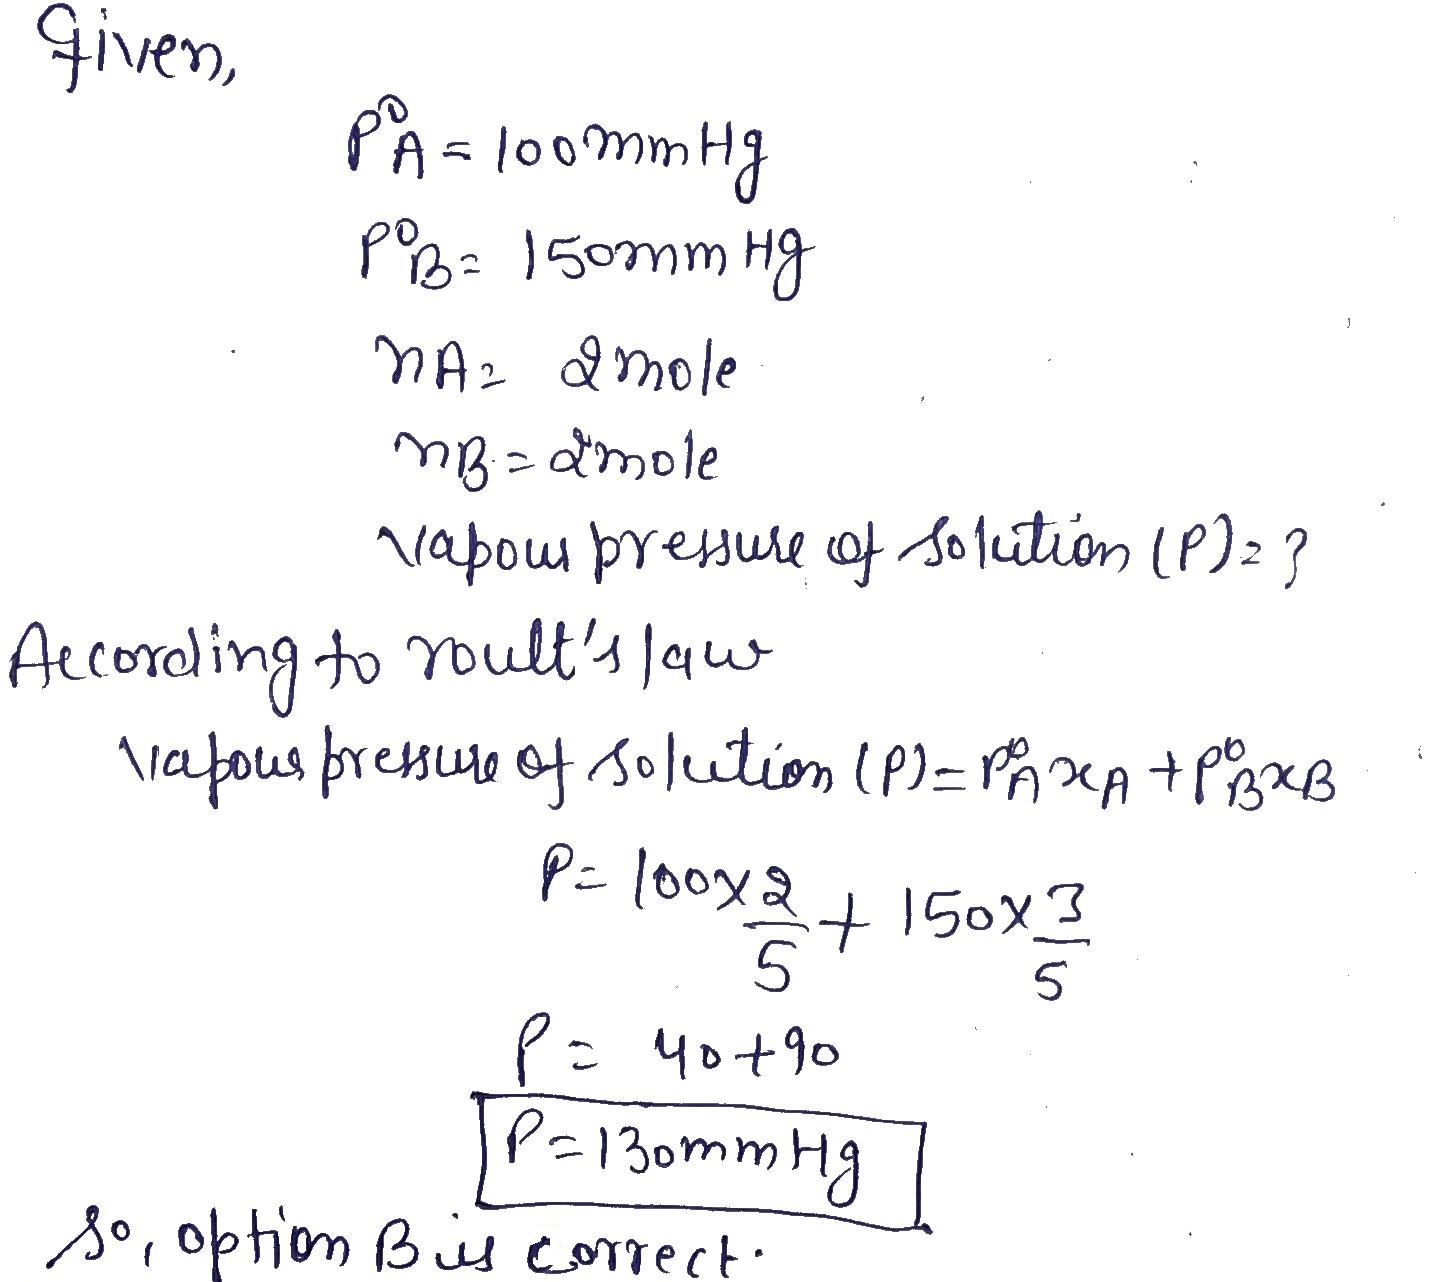 Given,
P⁰A = 100mmHg
P⁰B = 150mm Hg
nA = 2mole
nB = 2mole
Vapour pressure of solution (P) = ?
According to roult's law
Vapour pressure of solution (P) = P⁰A xA + P⁰B xB
P = 100 × 2/5 + 150 × 3/5
P = 40+90
P = 130mmHg
So, option B is correct.